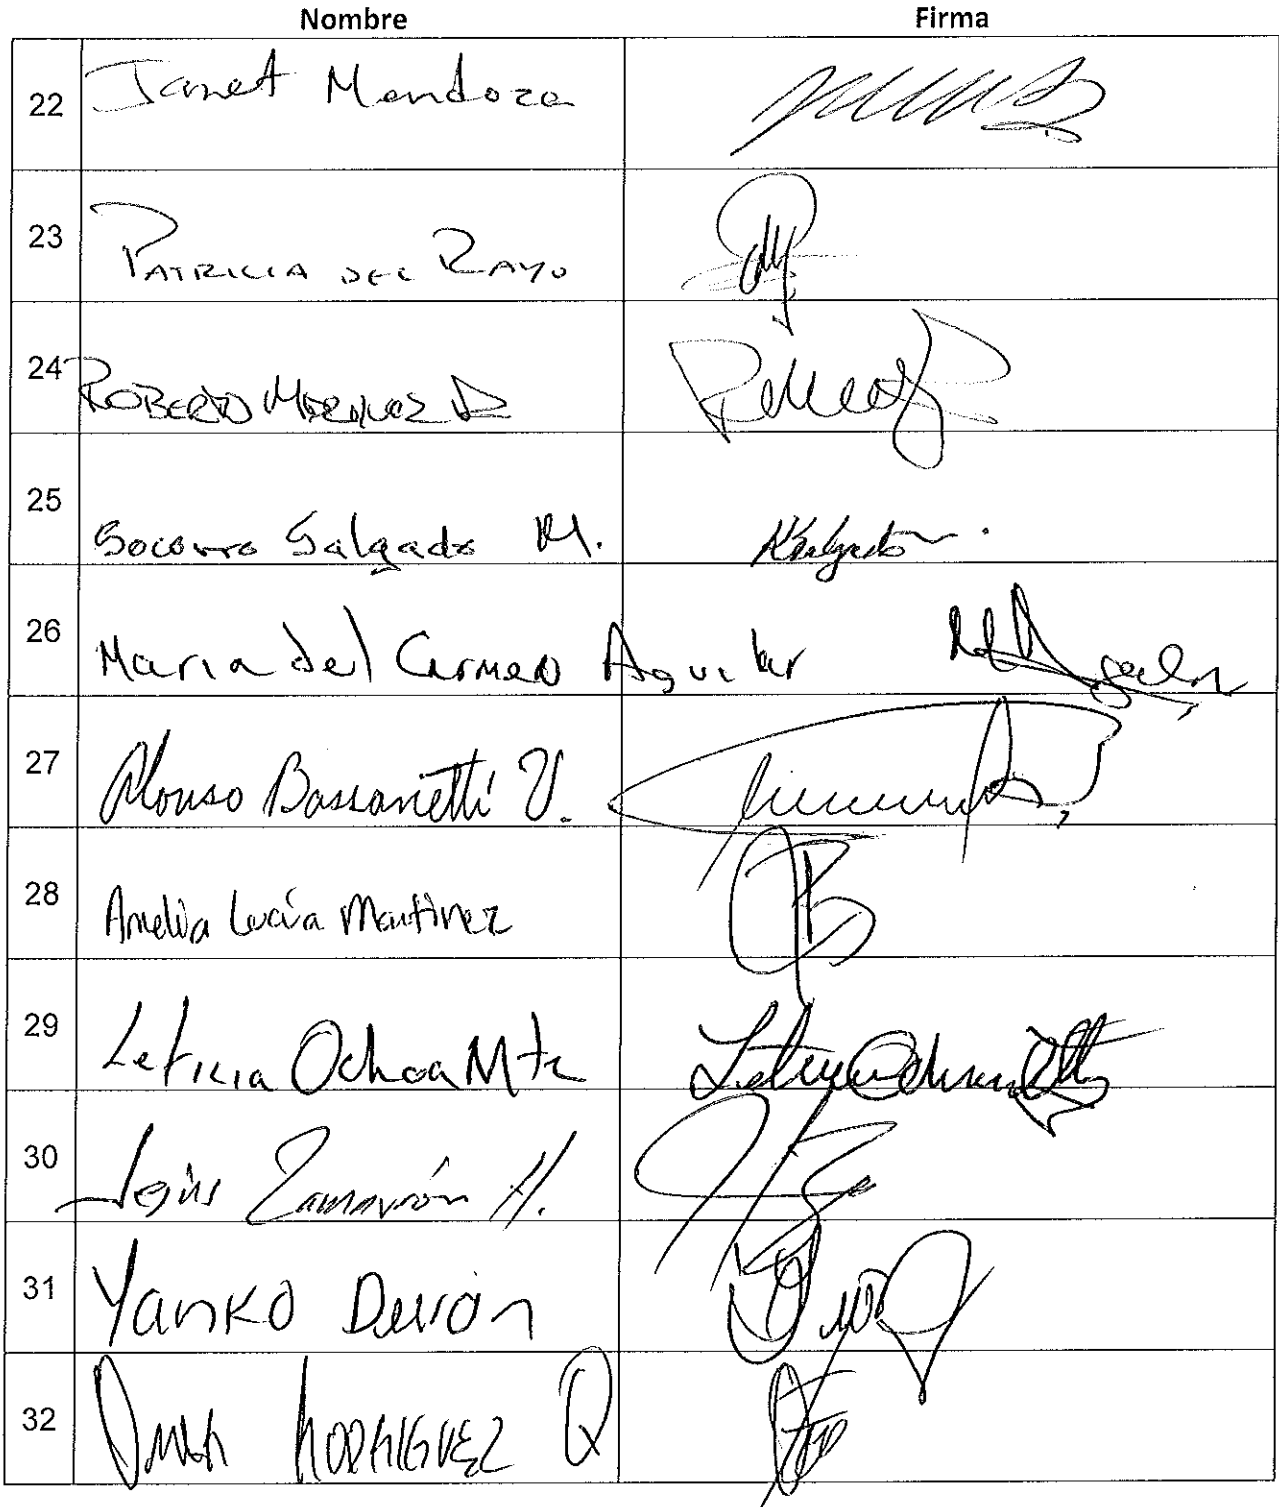 Nombre Firma
22 Janet Mendoza
23 PATRICIA DEL RAYO
24 ROBERTO MARQUEZ
25 Socorro Salgado M. Salgado
26 Maria del Carmen Aguilar
27 Alonso Bassanetti V.
28 Amelia Lucía Martínez
29 Leticia Ochoa Mtz Leticia Ochoa
30 Jesús Zamarrón H.
31 Yanko Durón
32 RODRIGUEZ Q